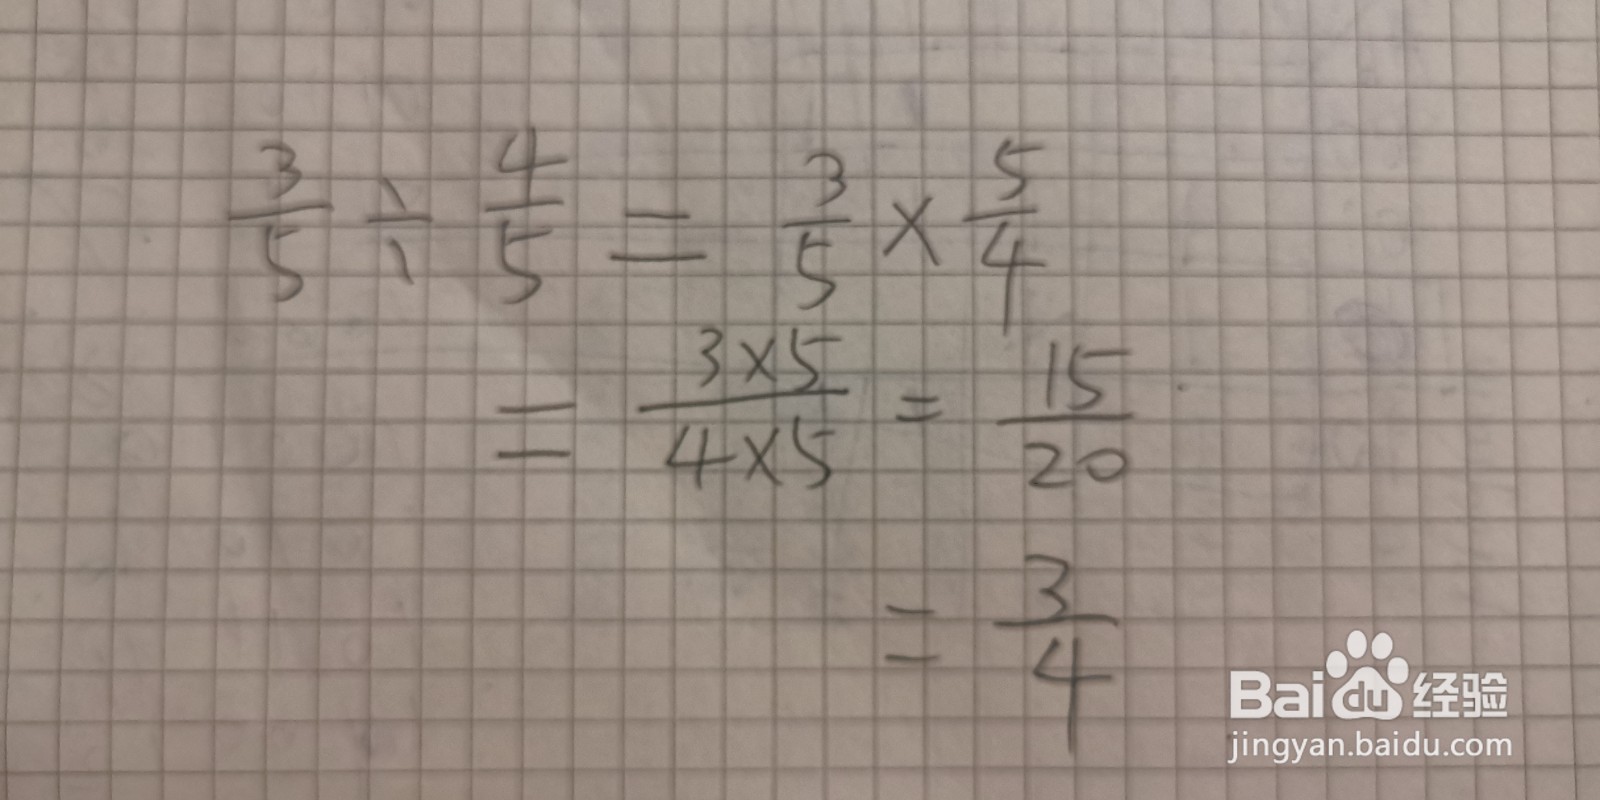 3/5 ÷ 4/5 = 3/5 × 5/4
= 3×5/4×5 = 15/20
= 3/4
Baidu 经验
jingyan.baidu.com